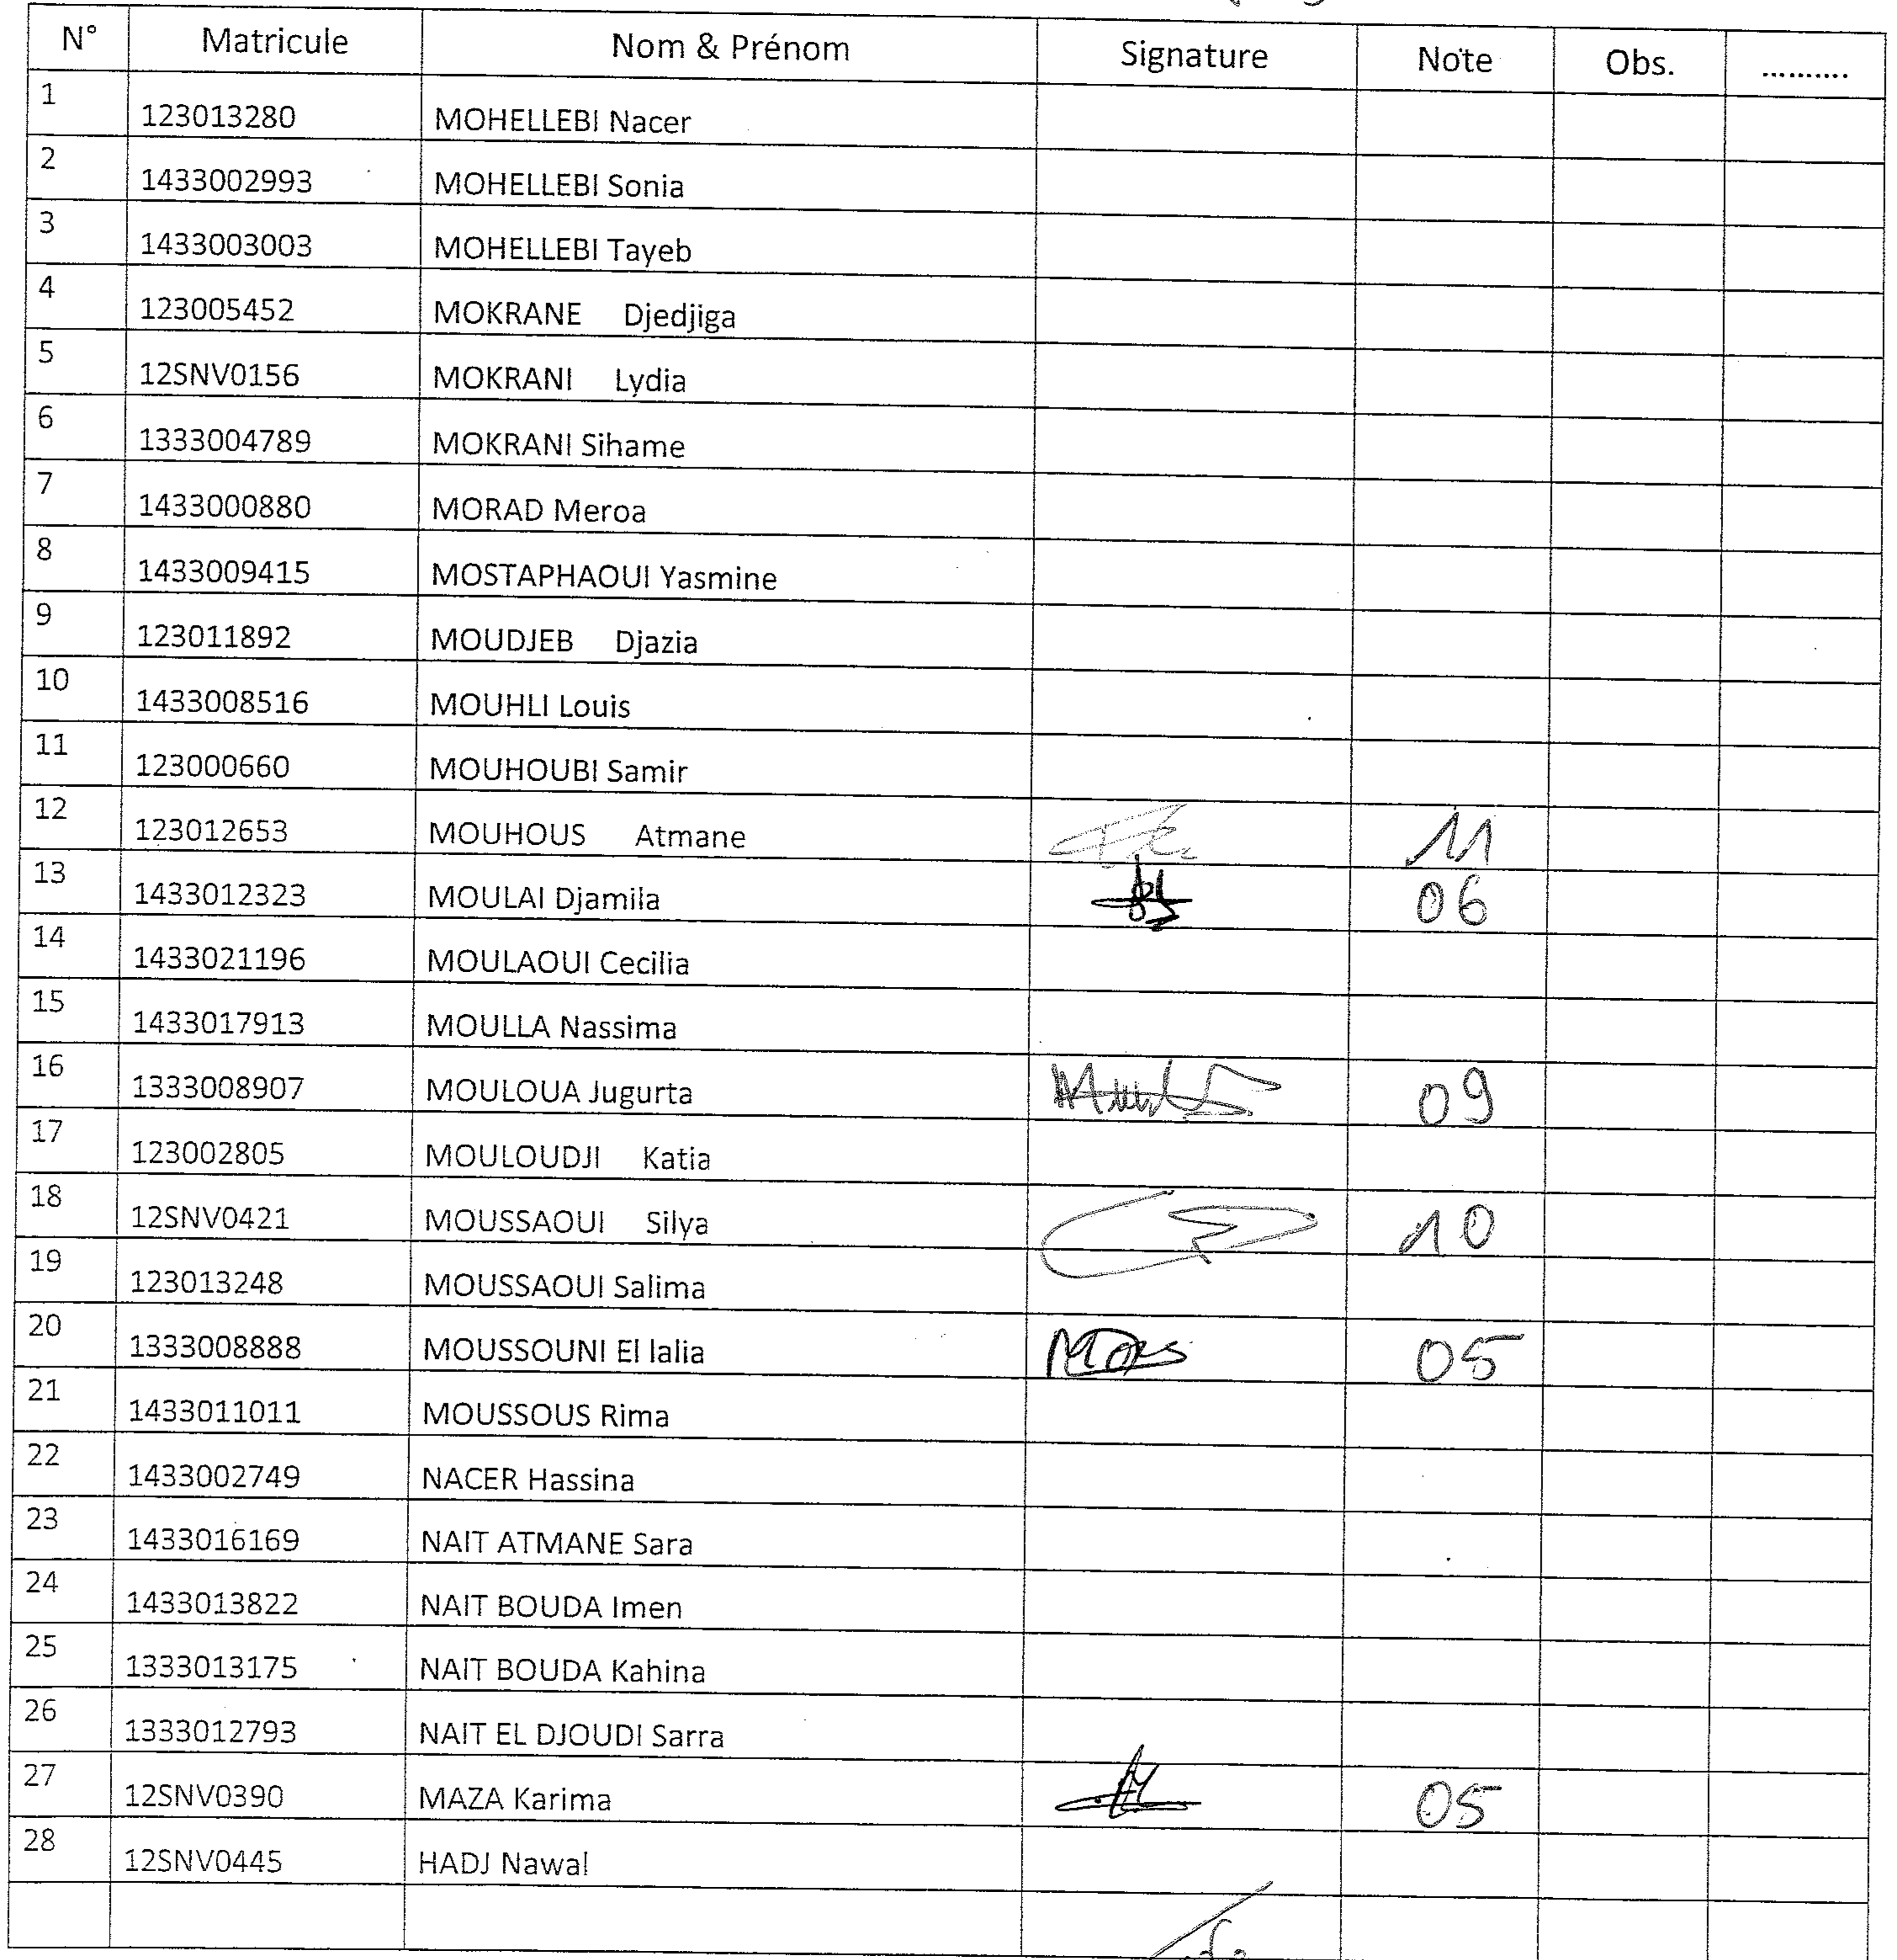 N° Matricule Nom & Prénom Signature Note Obs. ..........
1 123013280 MOHELLEBI Nacer
2 1433002993 MOHELLEBI Sonia
3 1433003003 MOHELLEBI Tayeb
4 123005452 MOKRANE Djedjiga
5 12SNV0156 MOKRANI Lydia
6 1333004789 MOKRANI Sihame
7 1433000880 MORAD Meroa
8 1433009415 MOSTAPHAOUI Yasmine
9 123011892 MOUDJEB Djazia
10 1433008516 MOUHLI Louis
11 123000660 MOUHOUBI Samir
12 123012653 MOUHOUS Atmane 11
13 1433012323 MOULAI Djamila 06
14 1433021196 MOULAOUI Cecilia
15 1433017913 MOULLA Nassima
16 1333008907 MOULOUA Jugurta 09
17 123002805 MOULOUDJI Katia
18 12SNV0421 MOUSSAOUI Silya 10
19 123013248 MOUSSAOUI Salima
20 1333008888 MOUSSOUNI El lalia 05
21 1433011011 MOUSSOUS Rima
22 1433002749 NACER Hassina
23 1433016169 NAIT ATMANE Sara
24 1433013822 NAIT BOUDA Imen
25 1333013175 NAIT BOUDA Kahina
26 1333012793 NAIT EL DJOUDI Sarra
27 12SNV0390 MAZA Karima 05
28 12SNV0445 HADJ Nawal